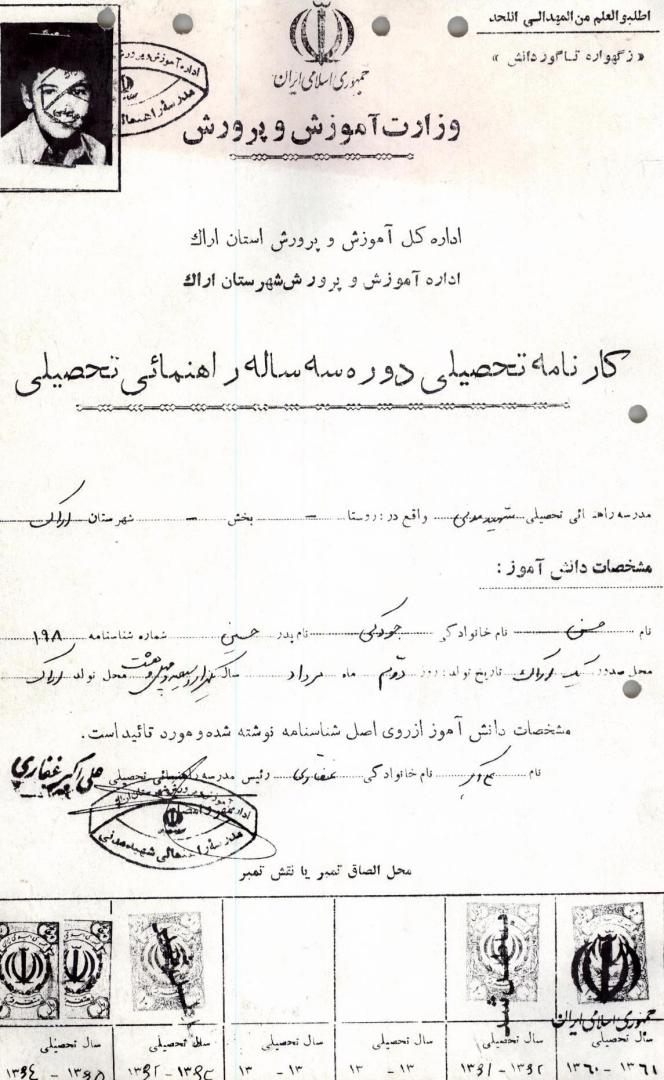 اطلبوا لعلم من المهد الی اللحد
« ز گهواره تا گور دانش »
جمهوری اسلامی ایران
وزارت آموزش و پرورش
اداره کل آموزش و پرورش استان اراک
اداره آموزش و پرورش شهرستان اراک
کارنامه تحصیلی دوره سه ساله راهنمائی تحصیلی
مدرسه راهنمائی تحصیلی شهید مدنی واقع در : روستا – بخش – شهرستان اراک
مشخصات دانش آموز :
نام حسن نام خانوادگی جودکی نام پدر حسین شماره شناسنامه ۱۹۸
محل صدور یک اراک تاریخ تولد : روز دوم ماه مرداد سال یکهزار و سیصد و چهل و هشت محل تولد اراک
مشخصات دانش آموز از روی اصل شناسنامه نوشته شده و مورد تائید است .
نام نام خانوادگی غفاری رئیس مدرسه راهنمائی تحصیلی
علی اکبر غفاری
مهر و امضاء
مدرسه راهنمائی شهید مدنی
محل الصاق تمبر یا نقش تمبر
باطل شد
جمهوری اسلامی ایران
سال تحصیلی سال تحصیلی سال تحصیلی سال تحصیلی سال تحصیلی سال تحصیلی
۱۳۶۰ - ۱۳۶۱ ۱۳۶۱ - ۱۳۶۲ ۱۳ - ۱۳ ۱۳ - ۱۳